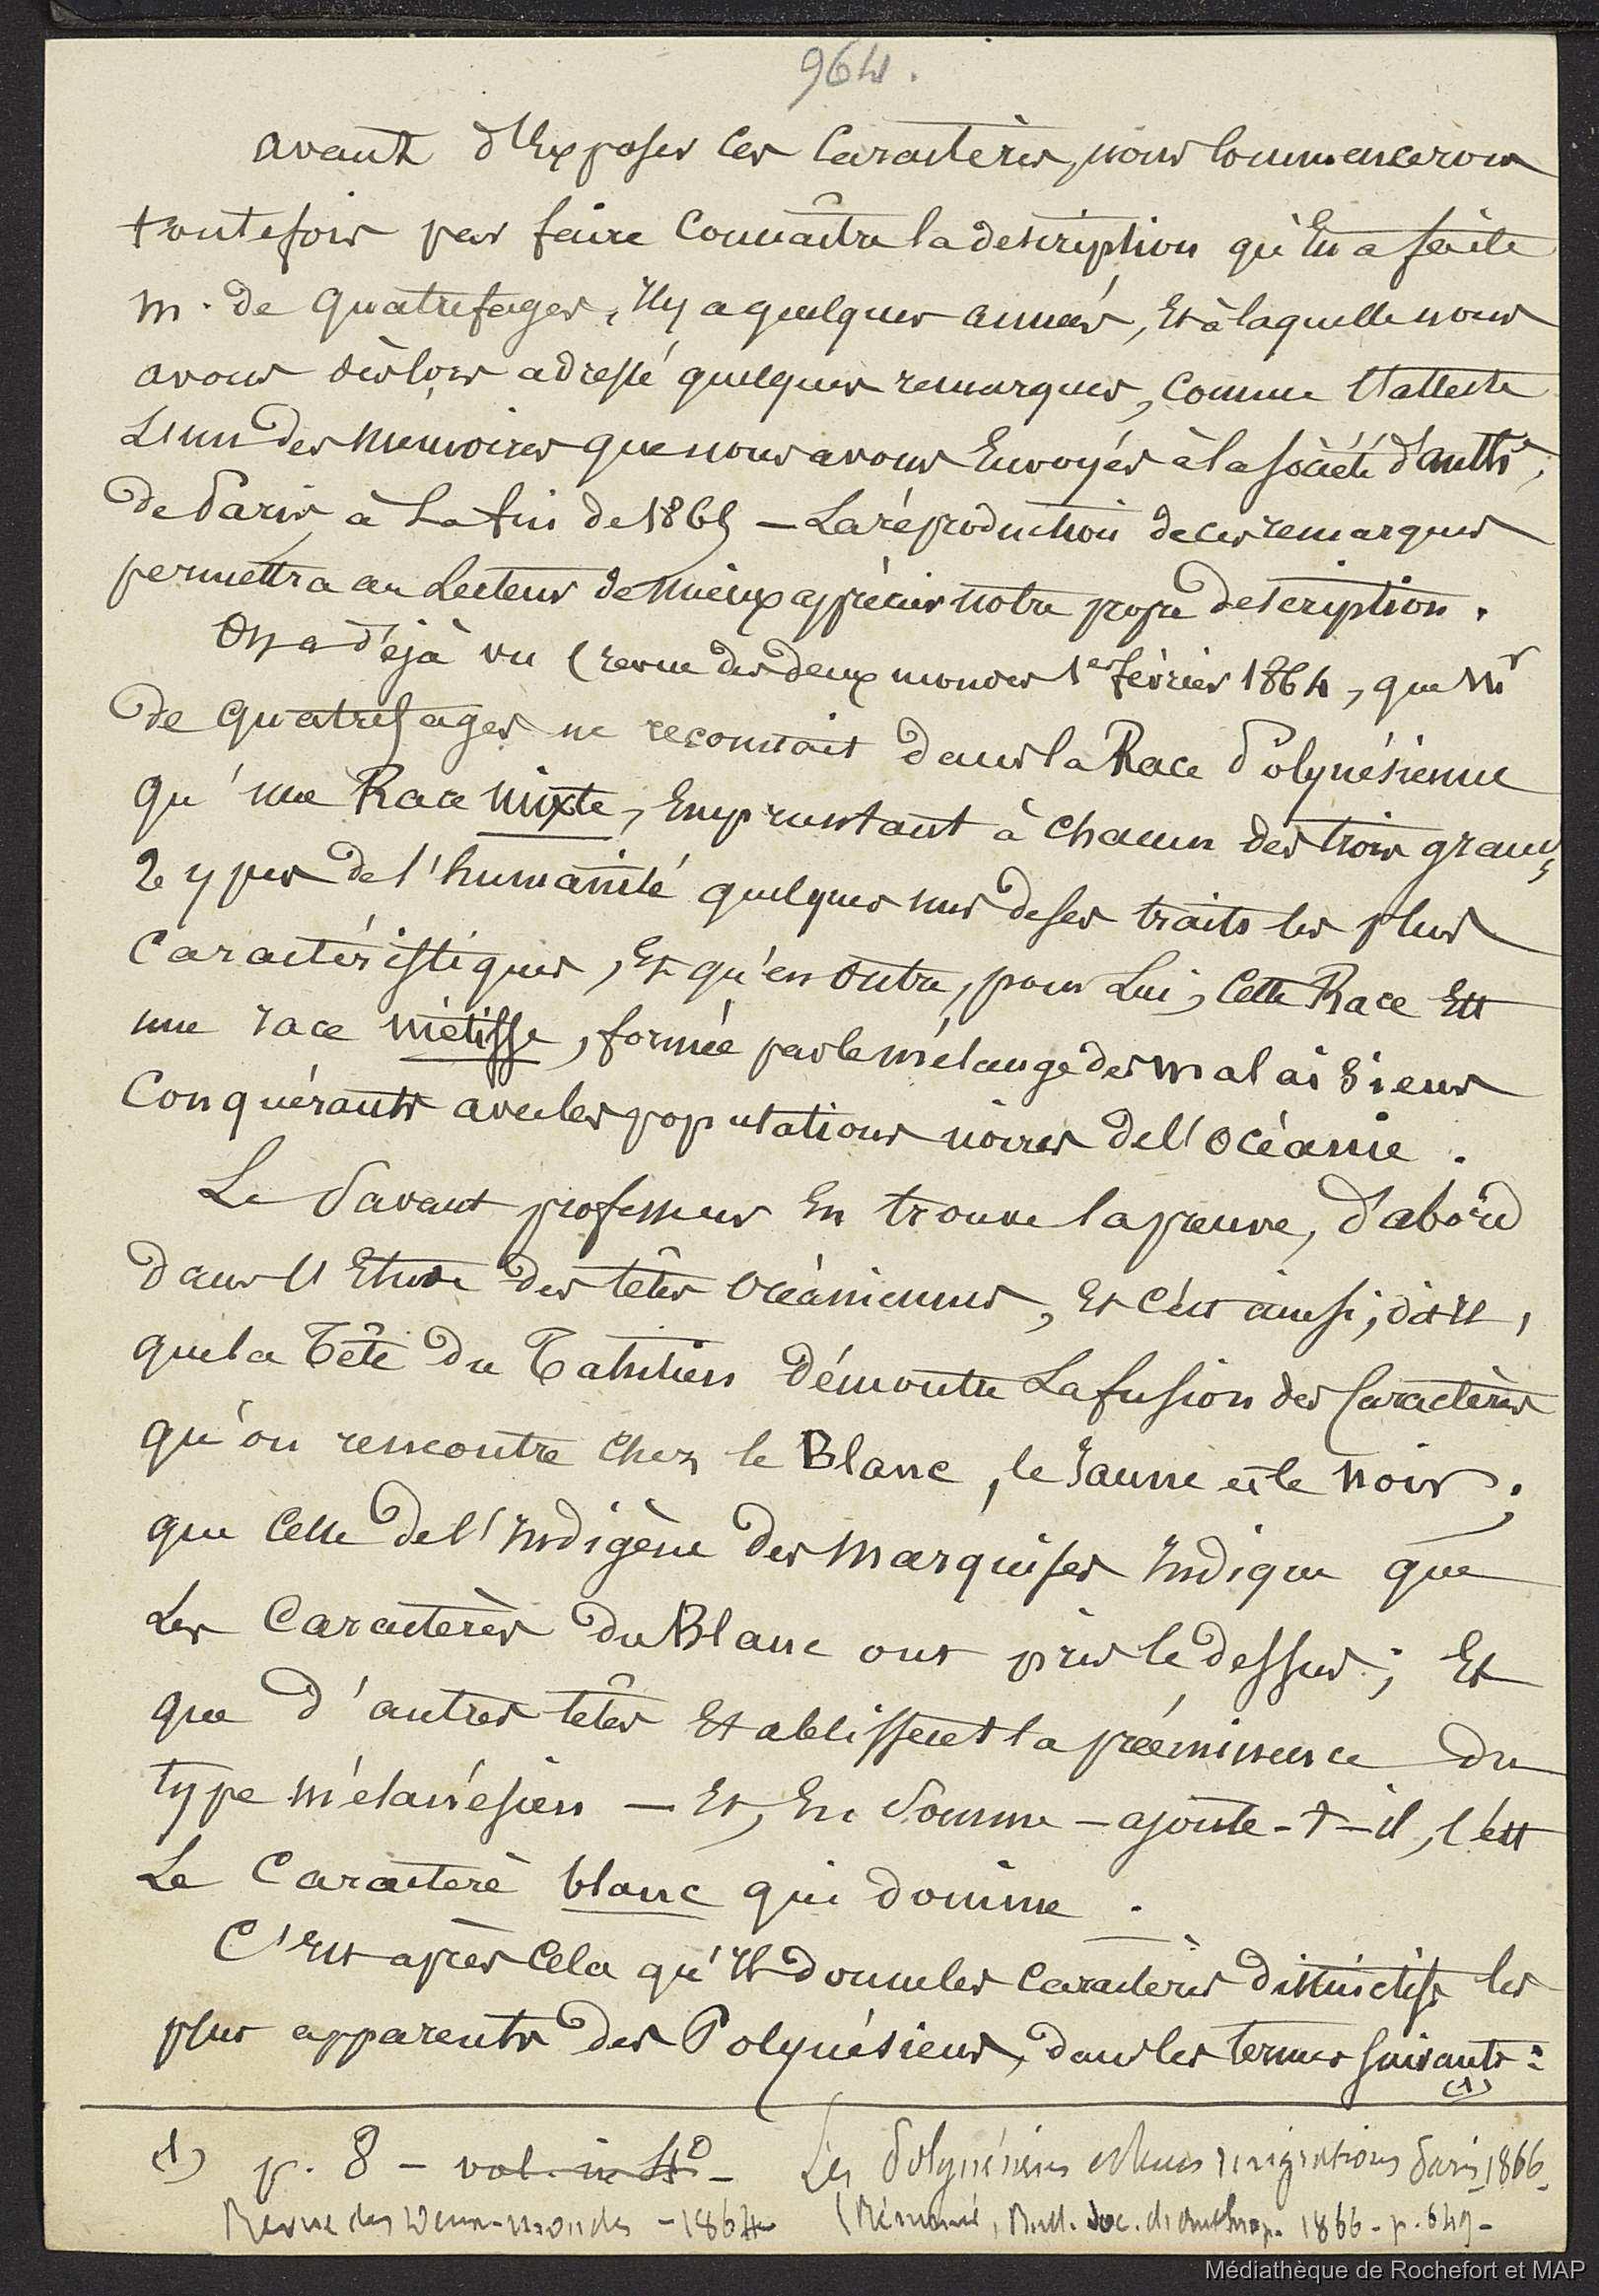 964.
avant d'Exposer ces Caractères, nous commencerons
toutefois par faire Connaître la description qu'En a faite
m. de Quatrefages, Il y a quelques années, Et à laquelle nous
avons dès lors adressé quelques remarques, Comme l'atteste
L'un des mémoires que nous avons Envoyés à la société d'anth:
de Paris à La fin de 1865 — La réproduction de ces remarques
permettra au Lecteur de mieux apprécier notre propre description.
On a déjà vu (revue des deux mondes 1er février 1864, que Mr
de Quatrefages ne reconnait dans la Race Polynésienne
qu'une Race mixte, Empruntant à chacun des trois grands
Types de l'humanité quelques uns de ses traits les plus
Caractéristiques, Et qu'en outre, pour Lui, Cette Race Est
une race métisse, formée par le mélange des malaisiens
Conquérants avec les populations noires de l'Océanie.
Le Savant professeur En trouve la preuve, d'abord
dans l'Etude des têtes Océaniennes, Et c'est ainsi, dit Il,
que la Tête du Tahitien Démontre La fusion des Caractères
qu'on rencontre Chez le Blanc, le Jaune et le noir;
que celle de l'Indigène des Marquises Indique que
Les Caractères du Blanc ont pris le dessus; Et
que d'autres têtes Etablissent la prééminence du
type mélanésien — Et, En Somme — ajoute-t-il, c'est
Le Caractère blanc qui domine.
C'Est après Cela qu'Il donne les caractères distinctifs les
plus apparents des Polynésiens, dans les termes suivants:
(1)
(1) p. 8 — vol. in 4o — Les Polynésiens et leurs migrations Paris, 1866.
Revue des Deux-mondes — 1864 (Résumé, Bull. Soc. d'Anthrop. 1866 - p. 649 -
Médiathèque de Rochefort et MAP